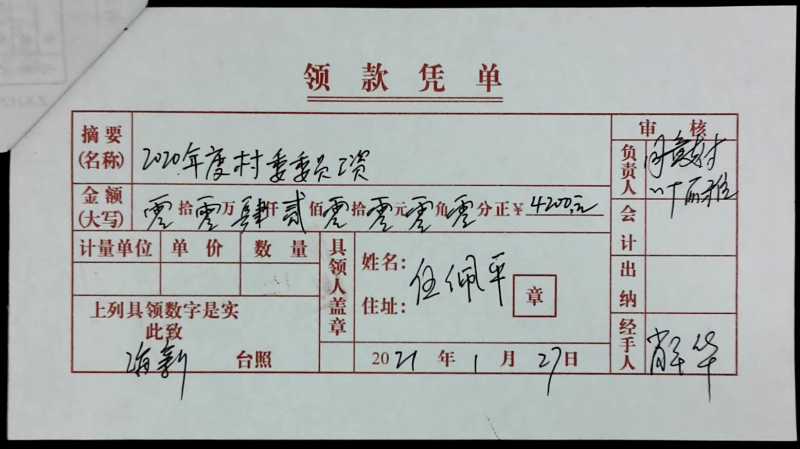 领款凭单
摘要(名称) 2020年度村委委员工资
金额(大写) 零拾零万肆仟贰佰零拾零元零角零分正¥4200元
计量单位 单价 数量
上列具领数字是实
此致
海新 台照
具领人盖章
姓名: 任佩平
住址:
章
2021年1月27日
审核
负责人
会计
出纳
经手人